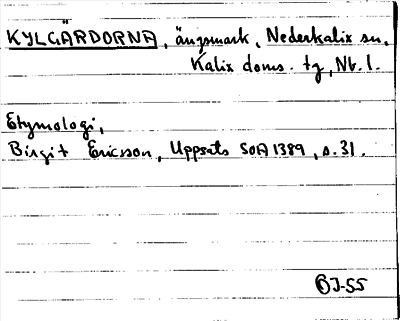 KYLGÄRDORNA, ängsmark, Nederkalix sn,
Kalix doms. tg, Nb. l.
Etymologi,
Birgit Ericson, Uppsats SOA 1389, s. 31.
BJ-55